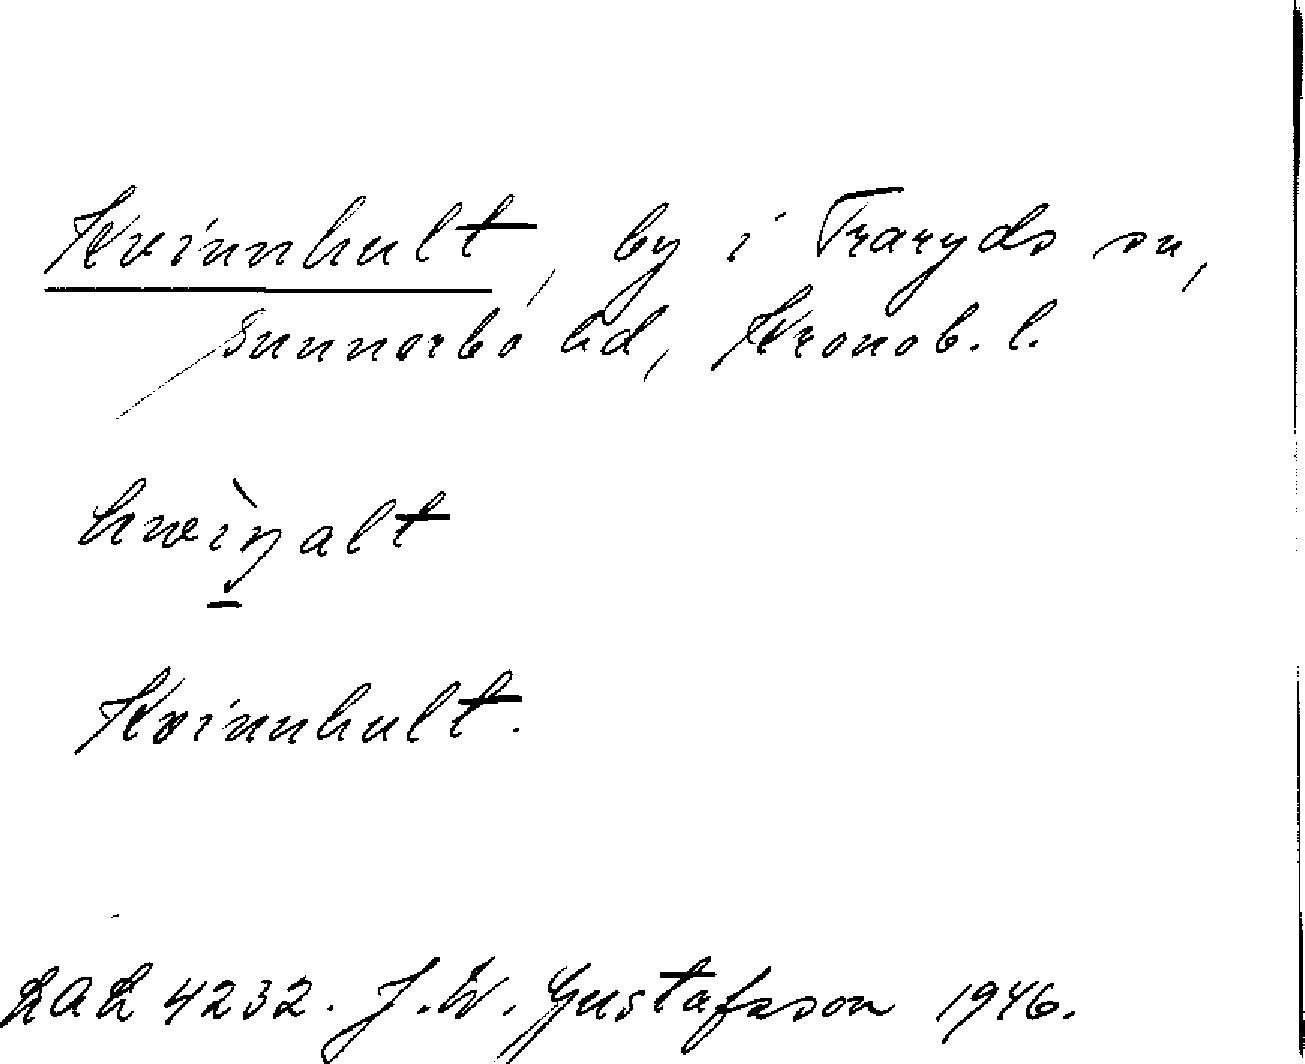 Kvinnhult, by i Traryds sn,
Sunnerbo hd, Kronob. l.
Kvinnhult.
LAL 4232. J. W. Gustafsson 1946.